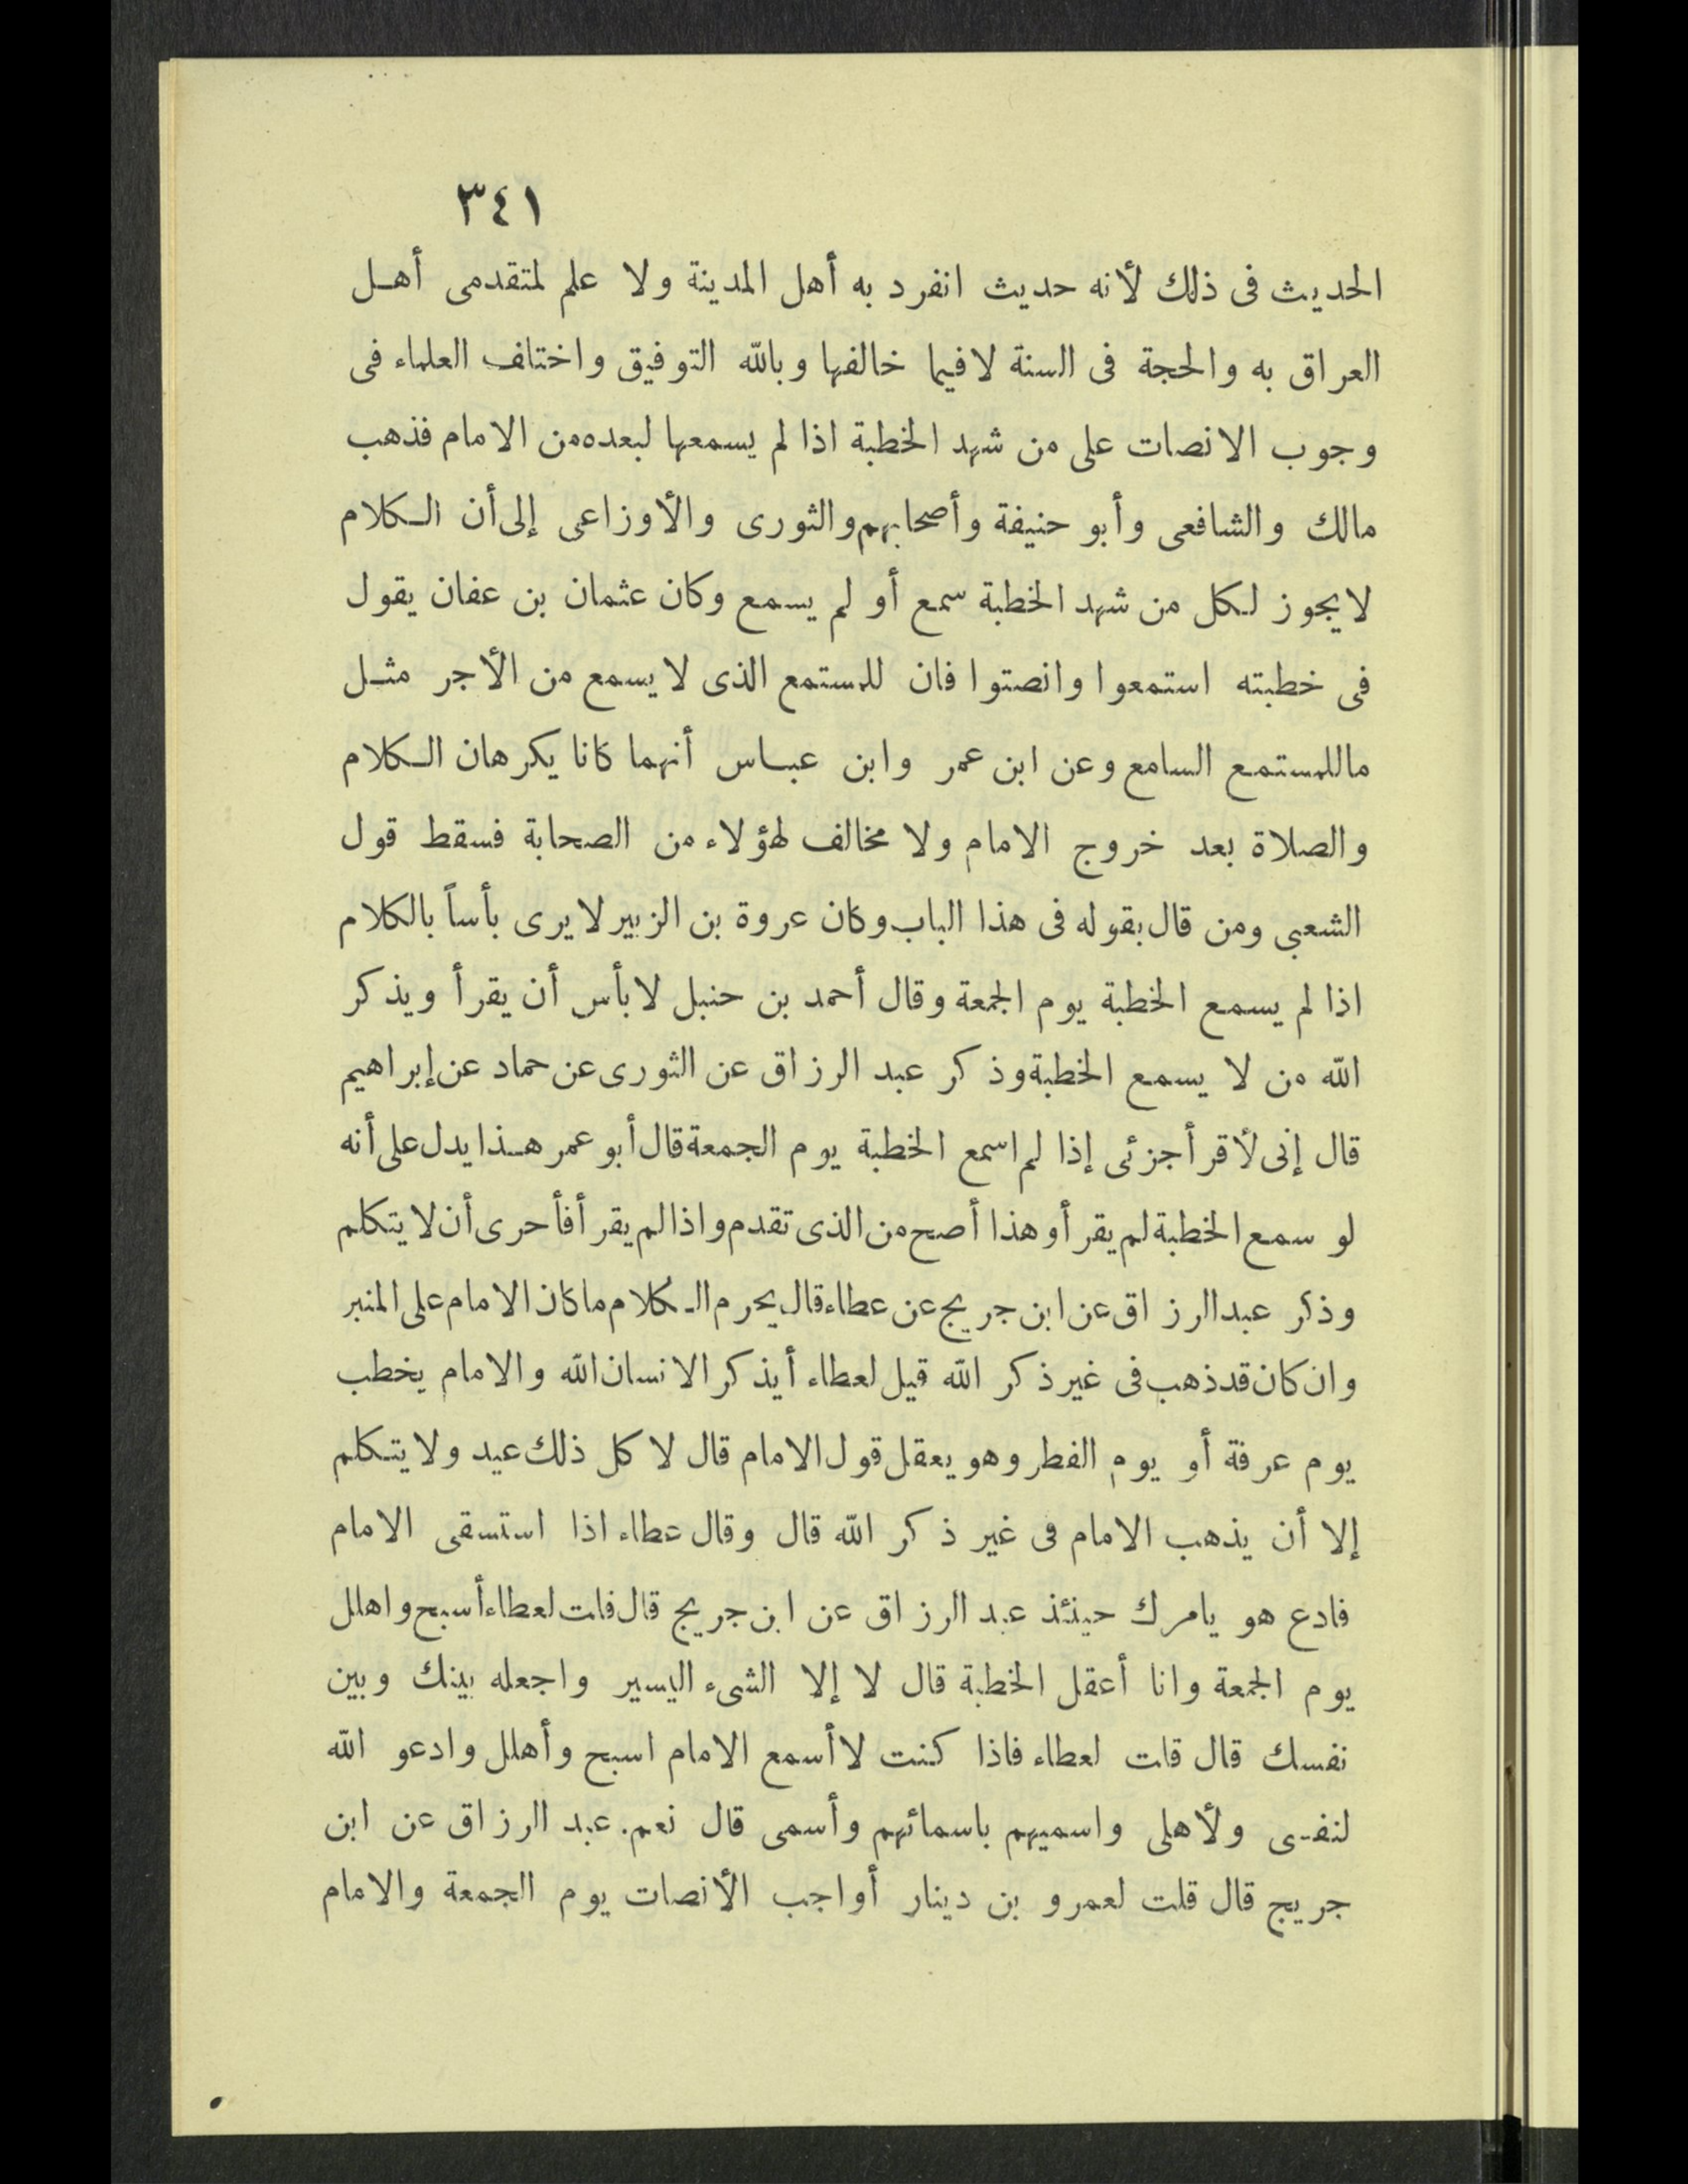 ٣٤١
الحديث فى ذلك لأنه حديث انفرد به أهل المدينة ولا علم لمتقدمى أهل
العراق به والحجة فى السنة لا فيما خالفها وبالله التوفيق واختلف العلماء فى
وجوب الانصات على من شهد الخطبة اذا لم يسمعها لبعده من الامام فذهب
مالك والشافعى وأبو حنيفة وأصحابهم والثورى والأوزاعى إلى أن الكلام
لا يجوز لكل من شهد الخطبة سمع أو لم يسمع وكان عثمان بن عفان يقول
فى خطبته استمعوا وانصتوا فان للمستمع الذى لا يسمع من الأجر مثل
ما للمستمع السامع وعن ابن عمر وابن عباس أنهما كانا يكرهان الكلام
والصلاة بعد خروج الامام ولا مخالف لهؤلاء من الصحابة فسقط قول
الشعبى ومن قال بقوله فى هذا الباب وكان عروة بن الزبير لا يرى بأساً بالكلام
اذا لم يسمع الخطبة يوم الجمعة وقال أحمد بن حنبل لا بأس أن يقرأ ويذكر
الله من لا يسمع الخطبة وذكر عبد الرزاق عن الثورى عن حماد عن إبراهيم
قال إنى لأقرأ جزئى إذا لم اسمع الخطبة يوم الجمعة قال أبو عمر هذا يدل على أنه
لو سمع الخطبة لم يقرأ وهذا أصح من الذى تقدم واذا لم يقرأ فأحرى أن لا يتكلم
وذكر عبد الرزاق عن ابن جريج عن عطاء قال يحرم الكلام ما كان الامام على المنبر
وان كان قد ذهب فى غير ذكر الله قيل لعطاء أيذكر الانسان الله والامام يخطب
يوم عرفة أو يوم الفطر وهو يعقل قول الامام قال لا كل ذلك عيد ولا يتكلم
إلا أن يذهب الامام فى غير ذكر الله قال وقال عطاء اذا استسقى الامام
فادع هو يامرك حينئذ عبد الرزاق عن ابن جريج قال قلت لعطاء أسبح واهلل
يوم الجمعة وانا أعقل الخطبة قال لا إلا الشىء اليسير واجعله بينك وبين
نفسك قال قلت لعطاء فاذا كنت لا أسمع الامام اسبح وأهلل وادعو الله
لنفسى ولأهلى واسميهم باسمائهم وأسمى قال نعم. عبد الرزاق عن ابن
جريج قال قلت لعمرو بن دينار أواجب الأنصات يوم الجمعة والامام